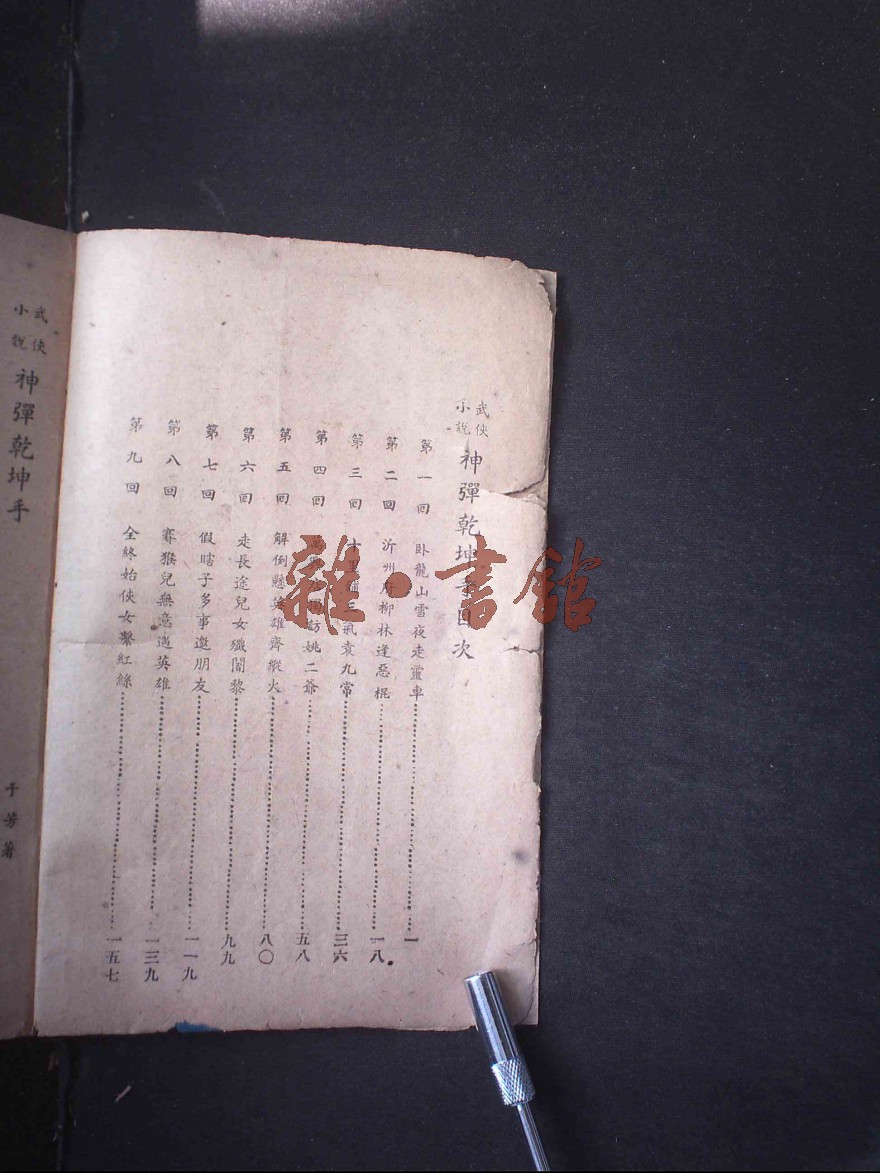 武俠
小說
神彈乾坤手目次
第一回 卧龍山雪夜走靈車 一
第二回 沂州府柳林逢惡棍 一八
第三回 十里舖三氣袁九常 三六
第四回 萬 訪姚二爺 五八
第五回 解倒懸英雄齊縱火 八〇
第六回 走長途兒女殲闍黎 九九
第七回 假瞎子多事邀朋友 一一九
第八回 賽猴兒無意遇英雄 一三九
第九回 全終始俠女繫紅絲 一五七
武俠
小說
神彈乾坤手
于芳著
雜·書館